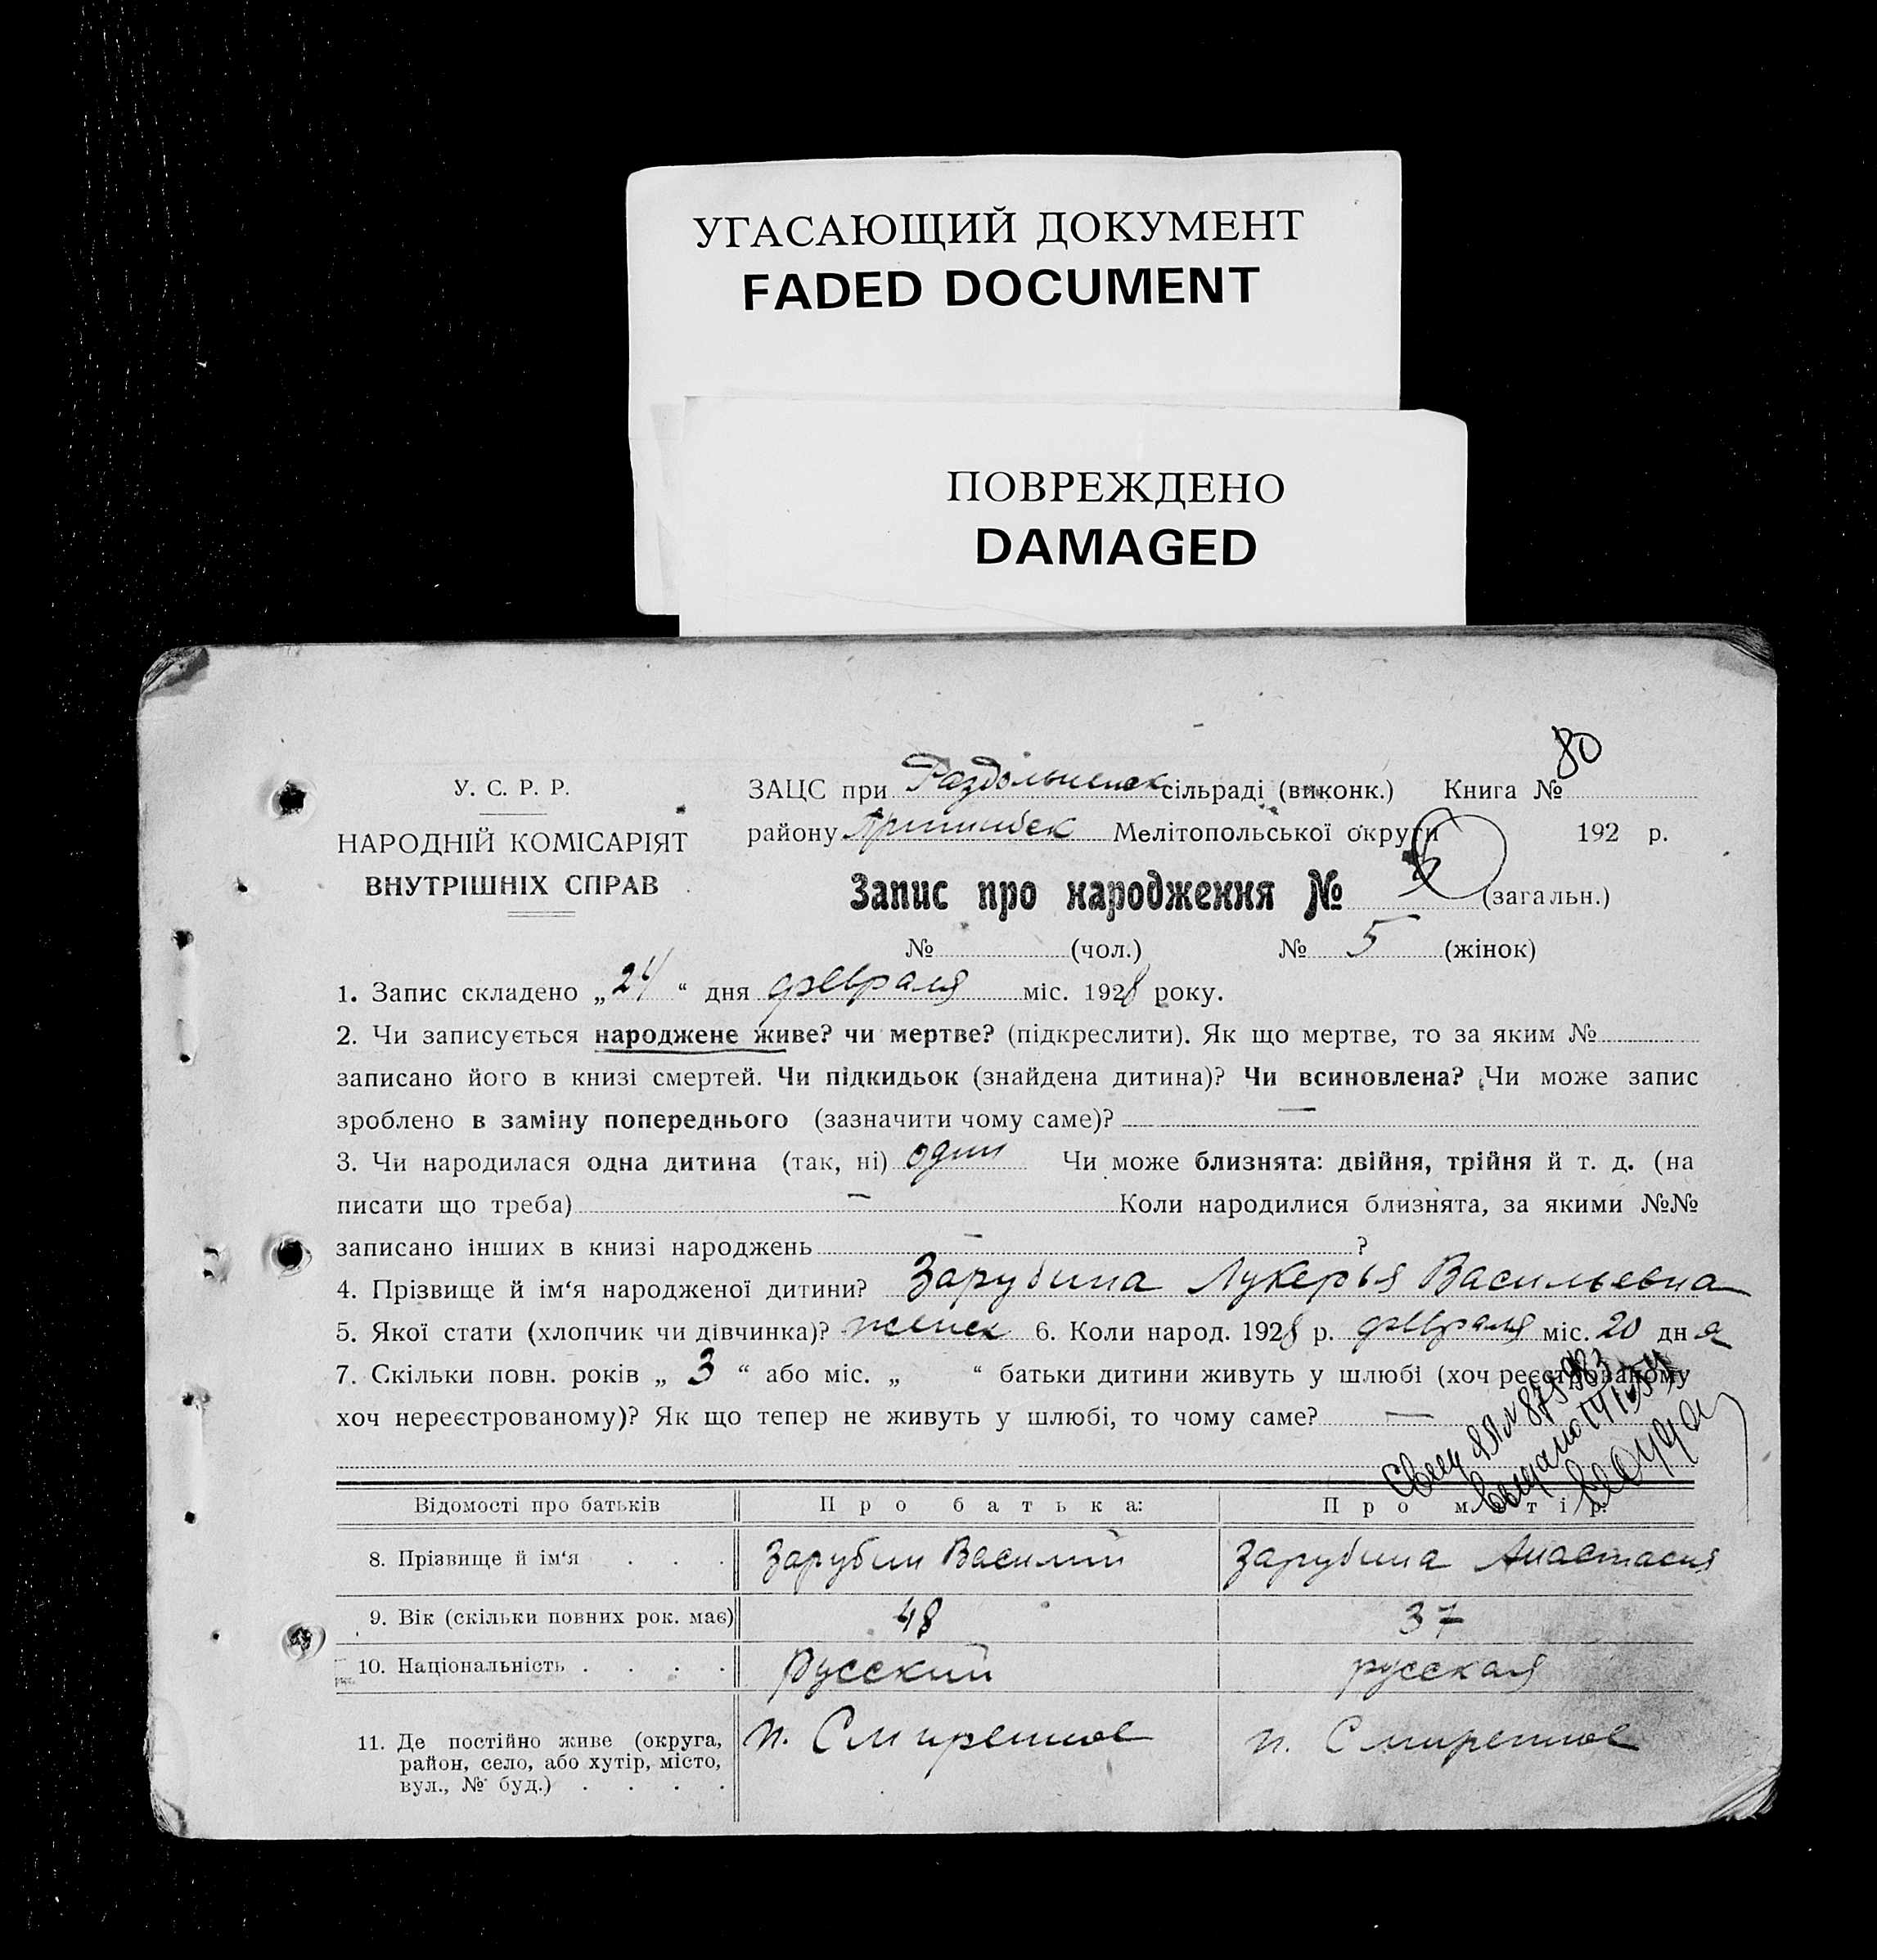 УГАСАЮЩИЙ ДОКУМЕНТ
FADED DOCUMENT
ПОВРЕЖДЕНО
DAMAGED
80
У. С. Р. Р.
НАРОДНІЙ КОМІСАРІЯТ
ВНУТРІШНІХ СПРАВ
ЗАЦС при Раздольненск сільраді (виконк.) Книга №
району Мелітопольської округи 192 р.
Запис про народження № (загальн.)
№ (чол.) № 5 (жінок)
1. Запис складено „24“ дня февраля міс. 1928 року.
2. Чи записується народжене живе? чи мертве? (підкреслити). Як що мертве, то за яким №
записано його в книзі смертей. Чи підкидьок (знайдена дитина)? Чи всиновлена? Чи може запис
зроблено в заміну попереднього (зазначити чому саме)? —
3. Чи народилася одна дитина (так, ні) один Чи може близнята: двійня, трійня й т. д. (на
писати що треба) — Коли народилися близнята, за якими №№
записано інших в книзі народжень — ?
4. Прізвище й ім‘я народженої дитини? Зарубина Лукерья Васильевна
5. Якої стати (хлопчик чи дівчинка)? женск 6. Коли народ. 1928 р. февраля міс. 20 дня
7. Скільки повн. років „ 3 “ або міс. „ “ батьки дитини живуть у шлюбі (хоч реєстрованому
хоч нереєстрованому)? Як що тепер не живуть у шлюбі, то чому саме? —
Відомості про батьків Про батька: Про матір:
8. Прізвище й ім‘я . . . Зарубин Василий Зарубина Анастасия
9. Вік (скільки повних рок. має) 48 37
10. Національність . . . . Русский русская
11. Де постійно живе (округа, район, село, або хутір, місто, вул., № буд.) . . . . п. Смиренное п. Смиренное